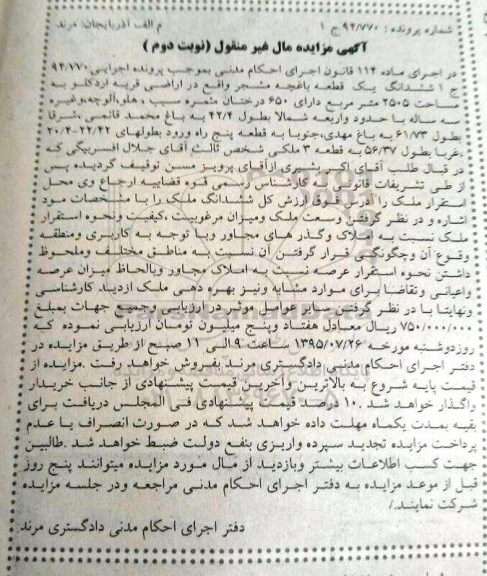 شماره پرونده : ۹۴/۷۷۰ ج ۱ م الف آذربایجان: مرند
آگهی مزایده مال غیر منقول (نوبت دوم )
در اجرای ماده ۱۱۴ قانون اجرای احکام مدنی بموجب پرونده اجرایی ۹۴/۷۷۰
ج ۱ ششدانگ یک قطعه باغچه مشجر واقع در اراضی قریه اردکلو به
مساحت ۲۵۰۵ متر مربع دارای ۶۵۰ درختان مثمره سیب ، هلو،آلوچه،وغیره
سه ساله با حدود واربعه شمالا بطول ۴۲/۴ به باغ محمد قائمی ،شرقا
بطول ۶۱/۷۳ به باغ مهدی،جنوبا به قطعه پنج راه ورود بطولهای ۲۲/۴۲-۲۰/۴
،غربا بطول ۵۶/۳۷ به قطعه ۳ ملکی شخص ثالث آقای جلال افسربیگی که
در قبال طلب آقای اکبر بشیری ازآقای پرویز مسن توقیف گردیده پس
از طی تشریفات قانونی به کارشناس رسمی قوه قضاییه ارجاع وی محل
استقرار ملک را آدرس فوق ارزش کل ششدانگ ملک را با مشخصات مود
اشاره و در نظر گرفتن وسعت ملک ومیزان مرغوبیت ،کیفیت ونحوه استقرار
ملک نسبت به املاک وگذر های مجاور وبا توجه به کاربری ومنطقه
وقوع آن وچگونگی قرار گرفتن آن نسبت به مناطق مختلف وملحوظ
داشتن نحوه استقرار عرصه نسبت به املاک مجاور وبالحاظ میزان عرصه
واعیانی وتقاضا برای موارد مشابه ونیز بهره دهی ملک ازدید کارشناسی
ونهایتا با در نظر گرفتن سایر عوامل موثر در ارزیابی وجمیع جهات بمبلغ
۷۵۰/۰۰۰/۰۰۰ ریال معادل هفتاد وپنج میلیون تومان ارزیابی نموده که
روزدوشنبه مورخه ۱۳۹۵/۰۷/۲۶ ساعت ۹ الی ۱۱ صبح از طریق مزایده در
دفتر اجرای احکام مدنی دادگستری مرند بفروش خواهد رفت .مزایده از
قیمت پایه شروع به بالاترین وآخرین قیمت پیشنهادی از جانب خریدار
واگذار خواهد شد .۱۰ درصد قیمت پیشنهادی فی المجلس دریافت برای
بقیه بمدت یکماه مهلت داده خواهد شد که در صورت انصراف یا عدم
پرداخت مزایده تجدید سپرده واریزی بنفع دولت ضبط خواهد شد .طالبین
جهت کسب اطلاعات بیشتر وبازدید از مال مورد مزایده میتوانند پنج روز
قبل از موعد مزایده به دفتر اجرای احکام مدنی مراجعه ودر جلسه مزایده
شرکت نمایند./
دفتر اجرای احکام مدنی دادگستری مرند